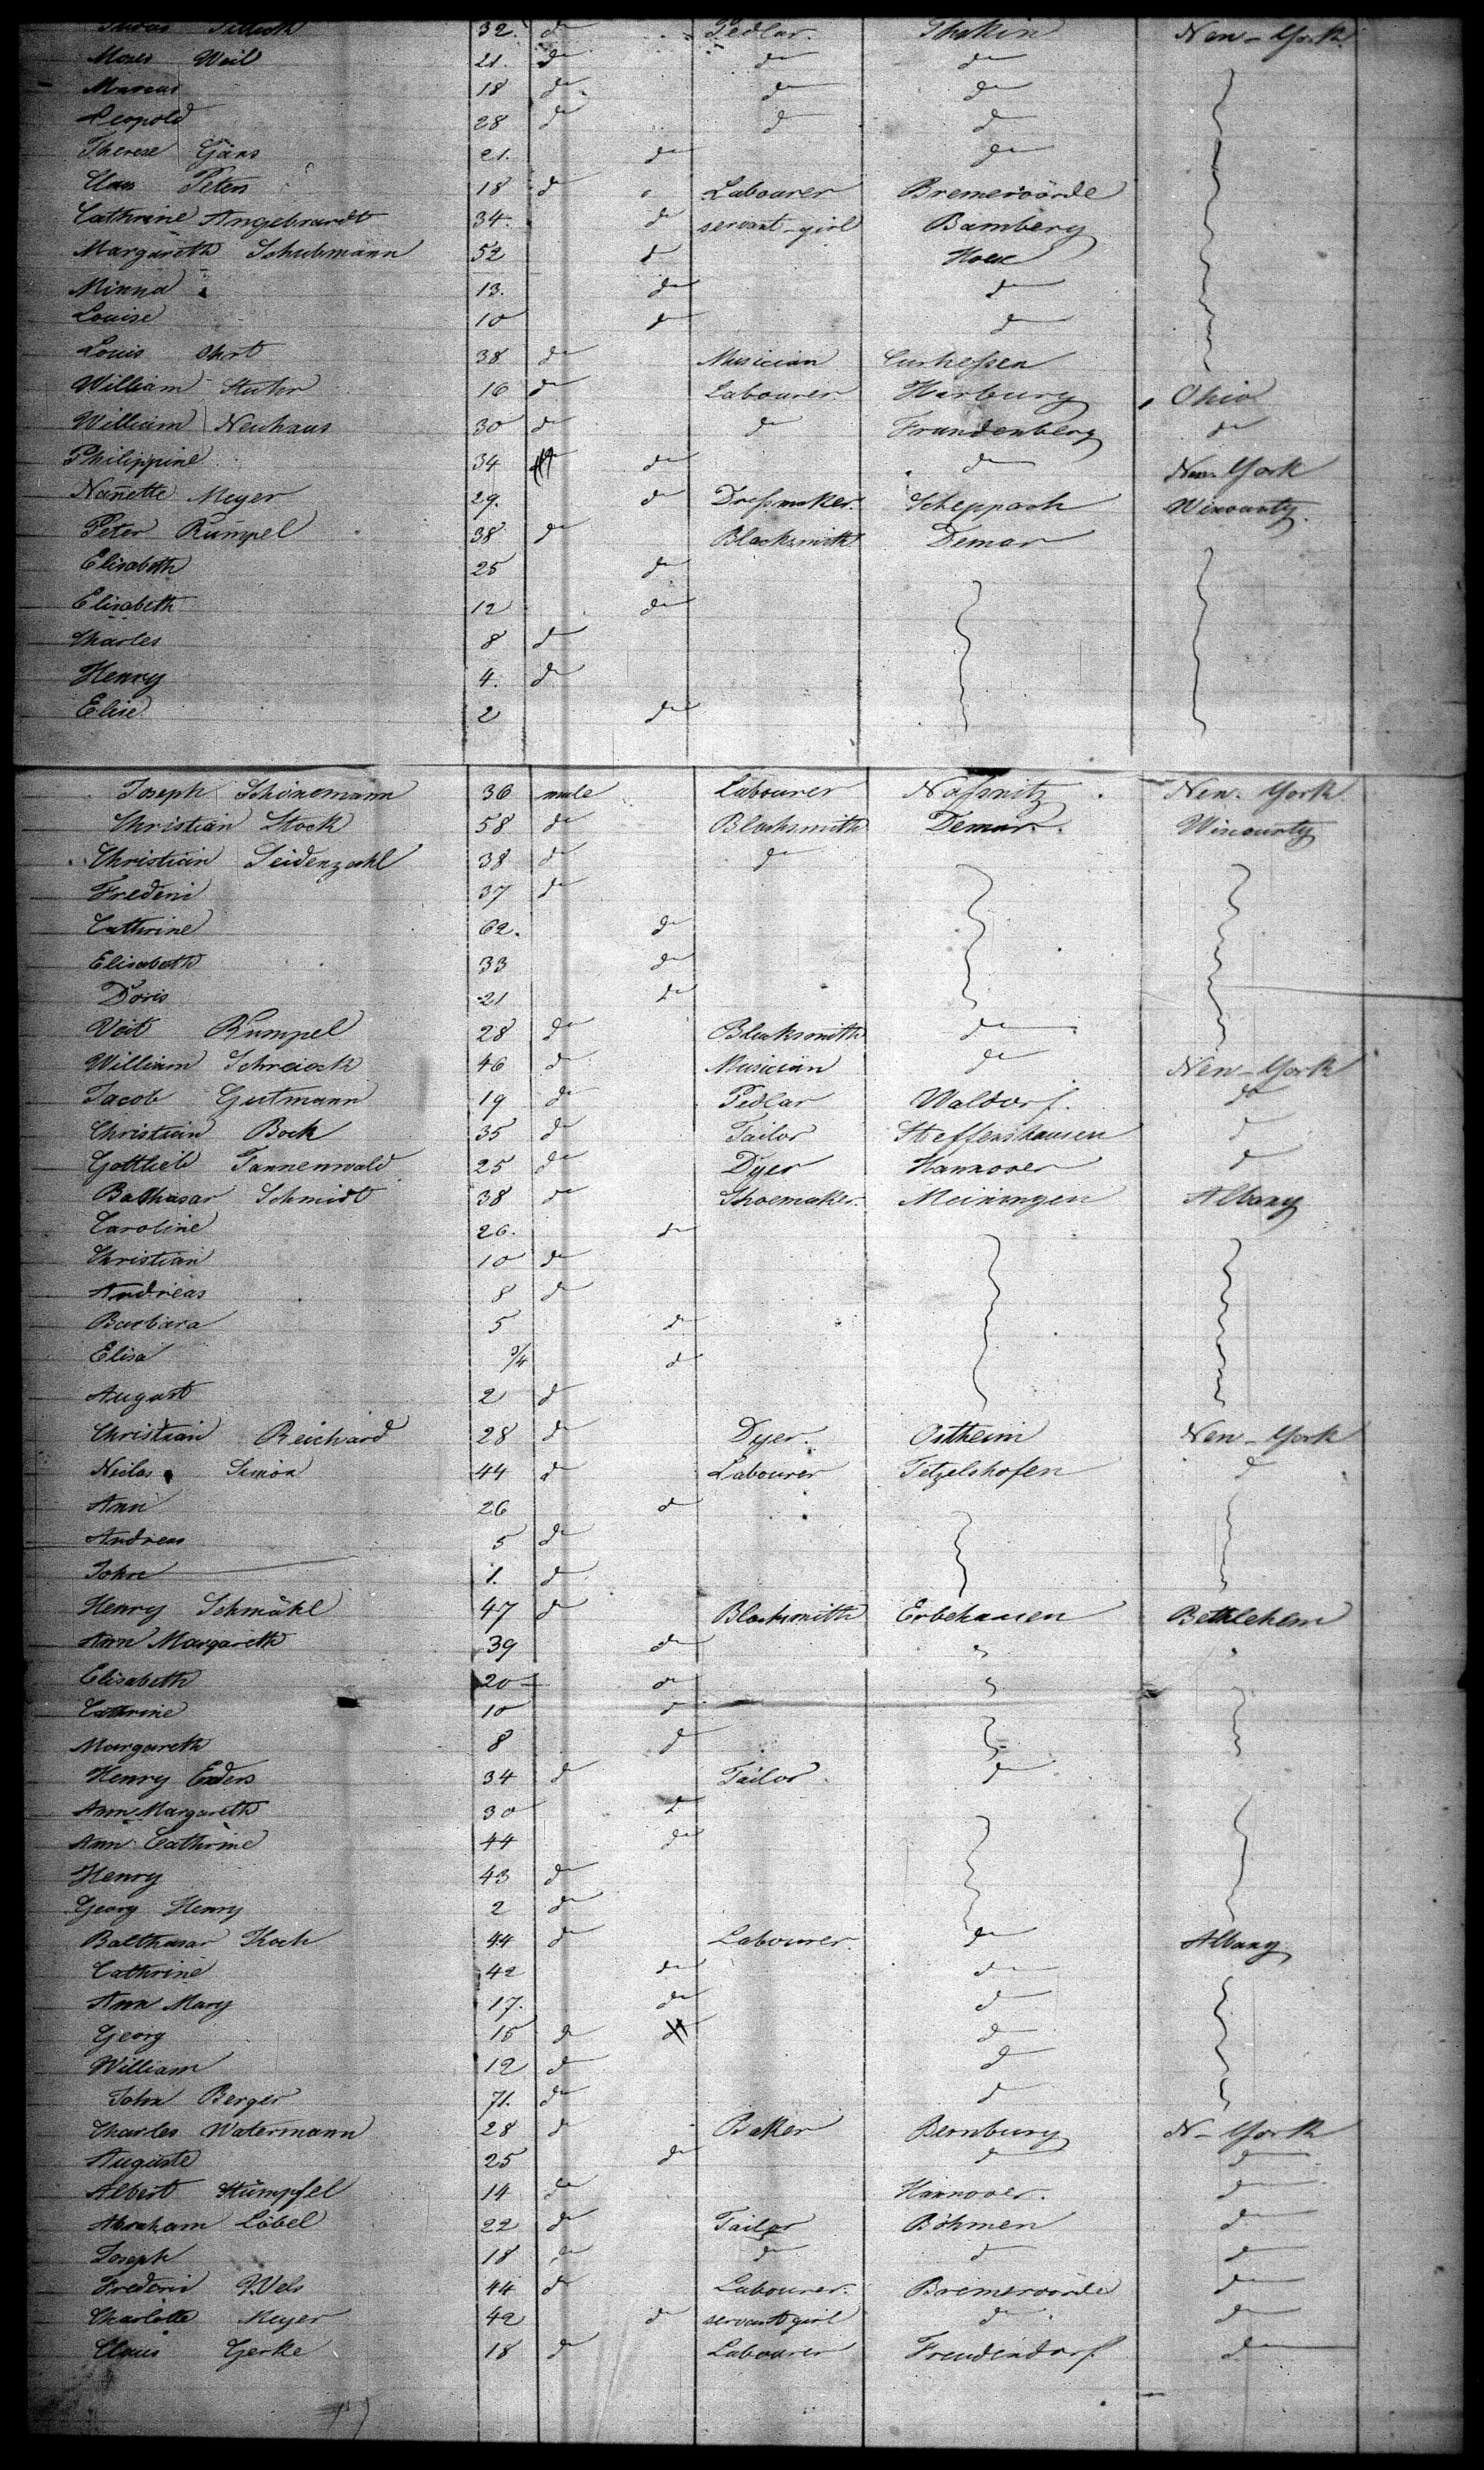 32. do Pedlar. New-York
Moses Weil 21. do do do
Marcus 18 do do do
Leopold 28 do do do
Therese Gans 21. do do
Claus Peters 18 do Labourer Bremervörde
Cathrine Angebrandt 34. do servant-girl Bamberg
Margareth Schuhmann 52 do
Minna 13. do do
Louise 10 do do
Louis 38 do Musician Curhessen
William Stuhr 16 do Labourer Harburg Ohio
William Neuhaus 30 do do Frandenberg do
Philippine 34 do do New-York
Nanette Meyer 29. do Dressmaker. Scheppach Wincounty.
Peter Rumpel 38 do Blacksmith Demar
Elisabeth 25 do
Elisabeth 12 do
Charles 8 do
Henry 4. do
Elise 2 do
Joseph Schönemann 36 male Labourer Nassnitz New-York
Christian Stock 58 do Blacksmith Demar. Wincounty
Christian Seidenzahl 38 do do
Frederic 37 do
Cathrine 62. do
Elisabeth 33 do
Doris 21 do
Veit Rumpel 28 do Blacksmith do
William Schreiock 46 do Musician do New-York
Jacob Gutmann 19 do Pedlar Waldorf. do
Christian Bock 35 do Tailor Steffenshausen do
Gottlieb Tannenwald 25 do Dyer Hannover do
Balthasar Schmidt 38 do Shoemaker. Meiningen Albany
Caroline 26. do
Christian 10 do
Andreas 8 do
Barbara 5 do
Elisa 3/4 do
August 2 do
Christian Reichard 28 do Dyer. Ostheim New-York
Simon 44 do Labourer Tetzelshofen do
Ann 26 do
Andreas 5 do
John 1. do
Henry Schmähl 47 do Blacksmith Erbehausen Bethlehem
Ann Margareth 39 do
Elisabeth 20 do
Cathrine 10 do
Margareth 8 do
Henry Enders 34 do Tailor do
Ann Margareth 30 do
Ann Cathrine 44 do
Henry 43 do
Georg Henry 2 do
Balthasar Koch 44 do Labourer. do Albany
Cathrine 42 do do
Ann Mary 17. do do
Georg 15 do do
William 12 do do
John Berger 71. do do
Charles Watermann 28 do Baker Bernburg N-York
Auguste 25 do do do
Albert Stümpfel 14 do Hannover. do
Abraham Löbel 22 do Tailor Böhmen do
Joseph 18 do do do do
Frederic Wels 44 do Labourer. Bremervörde do
Charlotte Meyer 42 do servant girl do do
Claus Gerke 18 do Labourer Freudendorf do